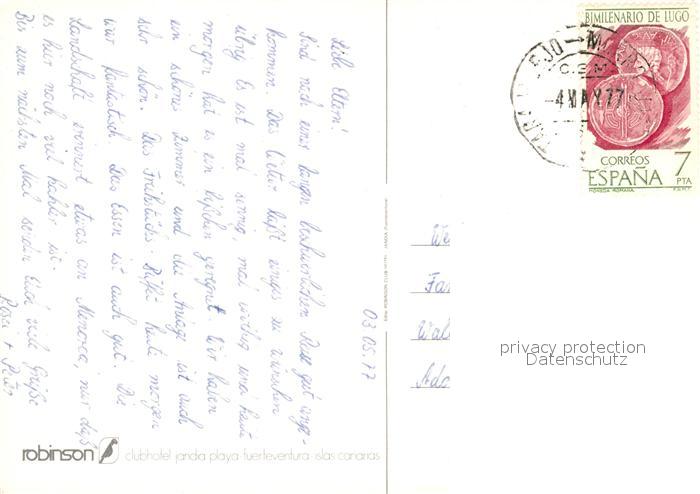 03.05.77
Liebe Eltern!
Sind nach einer langen beschwerlichen Reise gut ange-
kommen. Das Wetter läßt einiges zu wünschen
übrig. Es ist mal sonnig, mal wolkig und heute
morgen hat es ein bißchen geregnet. Wir haben
ein schönes Zimmer und die Anlage ist auch
sehr schön. Das Frühstücks-Büffet heute morgen
war fantastisch. Das Essen ist auch gut. Die
Landschaft erinnert etwas an Menorca, nur daß
es hier noch viel kahler ist.
Bis zum nächsten Mal senden Euch viele Grüße
+ Peter
robinson clubhotel jandia playa·fuerteventura·islas canarias
BIMILENARIO DE LUGO
C.E.M.
-4 MAY.77
CORREOS
7
ESPAÑA PTA
MONEDA ROMANA F.N.M.T.
privacy protection
Datenschutz